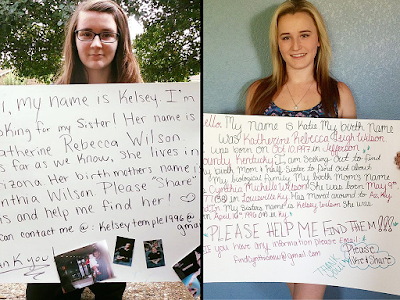 I, my name is Kelsey. I'm
looking for my Sister! Her name is
Catherine Rebecca Wilson
as far as we know, she lives in
Arizona Her birthmothers name is
Cynthia Wilson Please "share"
this and help me find her!
can contact me @: Kelseytemple1996@
gmail
Thank you
Hello! My name is Katie My birth name
was Katherine Rebecca Leigh Wilson
I was born on Oct 10, 1997 in Jefferson
County Kentucky! I am Seeking Out to find
my birth Mom & half Sister to find out about
my biological Family. My birth Mom's Name
is Cynthia Michelle Wilson She was born May 9th
in Louisville Ky. Has moved around to
My Sisters name is Kelsey Wilson She was
born April 16th 1996 in Ky
PLEASE HELP ME FIND THEM!!!
If you have any information Please Email
@gmail.com
Thank you
Please
Like & Share